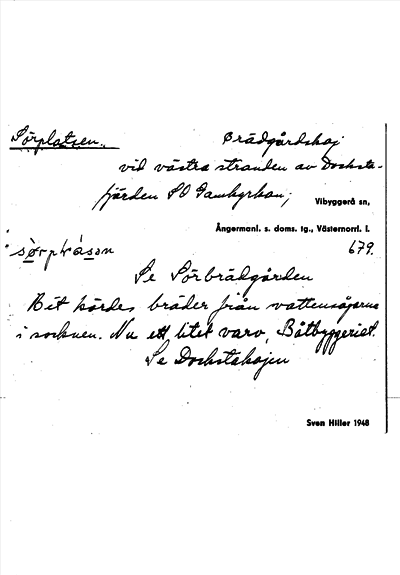 Sörplatsen. Brädgårdskaj
vid västra stranden av Docksta-
fjärden SO Gamkyrkan; Vibyggerå sn,
Ångermanl. s. doms. tg., Västernorrl. l.
sørplásan 679.
Se Sörbrädgården
Hit kördes bräder från vattensågarna
i socknen. Nu ett litet varv, Båtbyggeriet.
Se Dockstakajen
Sven Hiller 1948